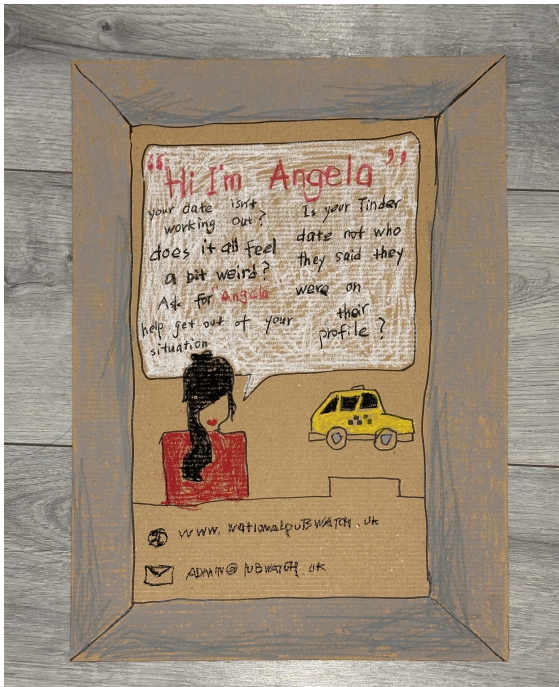 “Hi I'm Angela”
your date isn't
working out?
does it all feel
a bit weird?
Ask for "Angela
help get out of your
situation
Is your Tinder
date not who
they said they
were on
their
profile?
www.nationalpubwatch.uk
ADMIN@PUBWATCH.UK